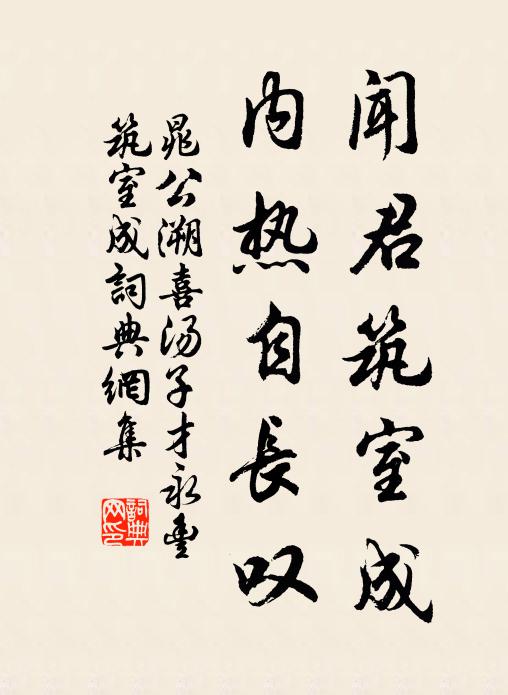 闻君筑室成
内热自長叹
晁公溯喜汤子才永豐
筑室成詞典網集
詞典
网印